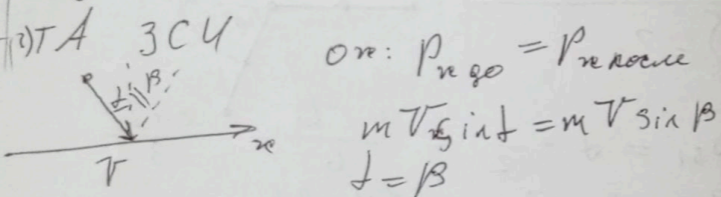 2) ТА ЗСИ
α β
x
V
ox: Px до = Px после
mV sin α = mV sin β
α = β